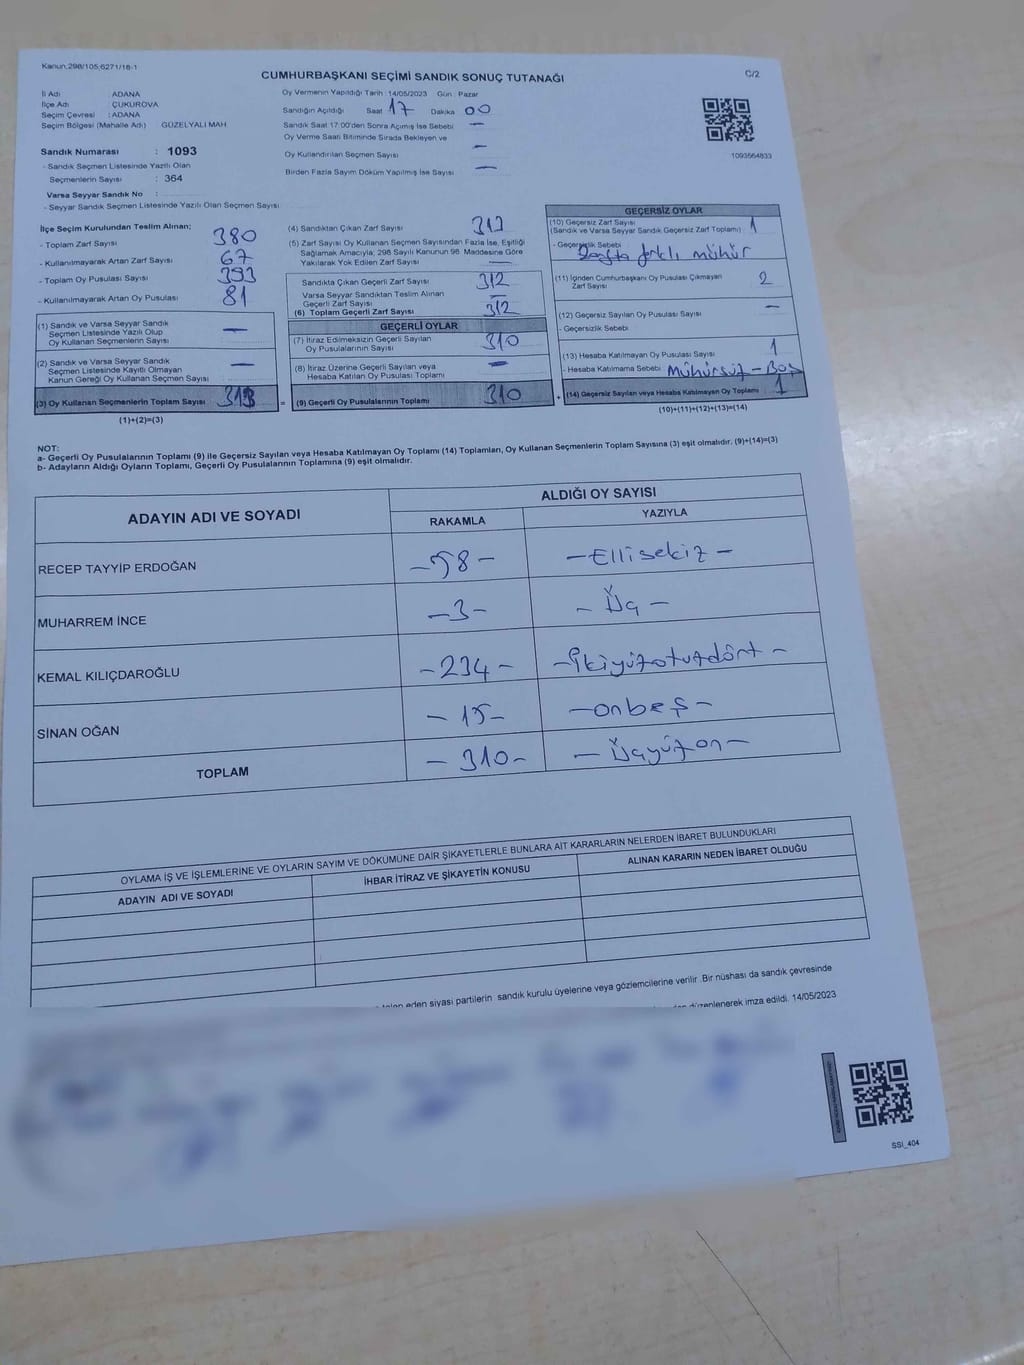 Kanun:298/105;6271/18-1
CUMHURBAŞKANI SEÇİMİ SANDIK SONUÇ TUTANAĞI
C/2
İl Adı : ADANA
İlçe Adı : ÇUKUROVA
Seçim Çevresi : ADANA
Seçim Bölgesi (Mahalle Adı) GÜZELYALI MAH
Sandık Numarası : 1093
- Sandık Seçmen Listesinde Yazılı Olan
Seçmenlerin Sayısı : 364
Varsa Seyyar Sandık No :
- Seyyar Sandık Seçmen Listesinde Yazılı Olan Seçmen Sayısı
Oy Vermenin Yapıldığı Tarih : 14/05/2023 Gün : Pazar
Sandığın Açıldığı Saat 17 Dakika 00
Sandık Saat 17:00'den Sonra Açımış İse Sebebi —
Oy Verme Saati Bitiminde Sırada Bekleyen ve
Oy Kullandırılan Seçmen Sayısı —
Birden Fazla Sayım Döküm Yapılmış İse Sayısı —
1093564833
İlçe Seçim Kurulundan Teslim Alınan:
- Toplam Zarf Sayısı 380
- Kullanılmayarak Artan Zarf Sayısı 67
- Toplam Oy Pusulası Sayısı 393
- Kullanılmayarak Artan Oy Pusulası 81
(1) Sandık ve Varsa Seyyar Sandık
Seçmen Listesinde Yazılı Olup
Oy Kullanan Seçmenlerin Sayısı —
(2) Sandık ve Varsa Seyyar Sandık
Seçmen Listesinde Kayıtlı Olmayan
Kanun Gereği Oy Kullanan Seçmen Sayısı —
(3) Oy Kullanan Seçmenlerin Toplam Sayısı 313
(1)+(2)=(3)
(4) Sandıktan Çıkan Zarf Sayısı 313
(5) Zarf Sayısı Oy Kullanan Seçmen Sayısından Fazla İse, Eşitliği
Sağlamak Amacıyla; 298 Sayılı Kanunun 98. Maddesine Göre
Yakılarak Yok Edilen Zarf Sayısı —
Sandıkta Çıkan Geçerli Zarf Sayısı 312
Varsa Seyyar Sandıktan Teslim Alınan
Geçerli Zarf Sayısı —
(6) Toplam Geçerli Zarf Sayısı 312
GEÇERLİ OYLAR
(7) İtiraz Edilmeksizin Geçerli Sayılan
Oy Pusulalarının Sayısı 310
(8) İtiraz Üzerine Geçerli Sayılan veya
Hesaba Katılan Oy Pusulası Toplamı —
= (9) Geçerli Oy Pusulalarının Toplamı 310
GEÇERSİZ OYLAR
(10) Geçersiz Zarf Sayısı
(Sandık ve Varsa Seyyar Sandık Geçersiz Zarf Toplamı) 1
- Geçersizlik Sebebi
Zarfta farklı mühür
(11) İçinden Cumhurbaşkanı Oy Pusulası Çıkmayan
Zarf Sayısı 2
(12) Geçersiz Sayılan Oy Pusulası Sayısı —
- Geçersizlik Sebebi
(13) Hesaba Katılmayan Oy Pusulası Sayısı 1
- Hesaba Katılmama Sebebi Mühürsüz - Boş
+ (14) Geçersiz Sayılan veya Hesaba Katılmayan Oy Toplamı 1
(10)+(11)+(12)+(13)=(14)
NOT:
a- Geçerli Oy Pusulalarının Toplamı (9) ile Geçersiz Sayılan veya Hesaba Katılmayan Oy Toplamı (14) Toplamları, Oy Kullanan Seçmenlerin Toplam Sayısına (3) eşit olmalıdır. (9)+(14)=(3)
b- Adayların Aldığı Oyların Toplamı, Geçerli Oy Pusulalarının Toplamına (9) eşit olmalıdır.
ADAYIN ADI VE SOYADI
ALDIĞI OY SAYISI
RAKAMLA YAZIYLA
RECEP TAYYİP ERDOĞAN -58- -Ellisekiz-
MUHARREM İNCE -3- -Üç-
KEMAL KILIÇDAROĞLU -234- -İkiyüzotuzdört-
SİNAN OĞAN -15- -onbeş-
TOPLAM -310- -Üçyüzon-
OYLAMA İŞ VE İŞLEMLERİNE VE OYLARIN SAYIM VE DÖKÜMÜNE DAİR ŞİKAYETLERLE BUNLARA AİT KARARLARIN NELERDEN İBARET BULUNDUKLARI
ADAYIN ADI VE SOYADI İHBAR İTİRAZ VE ŞİKAYETİN KONUSU ALINAN KARARIN NEDEN İBARET OLDUĞU
eden siyasi partilerin sandık kurulu üyelerine veya gözlemcilerine verilir. Bir nüshası da sandık çevresinde
düzenlenerek imza edildi. 14/05/2023
SSI_404